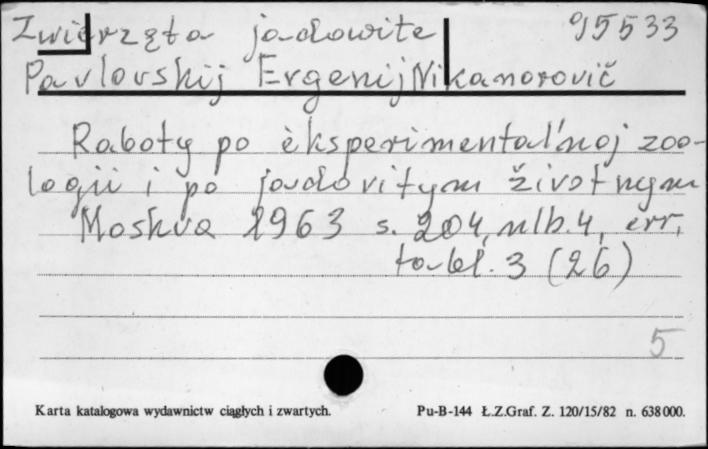 Zwierzęta jadowite 95533
Pavlovskij Evgenij Nikanorovič
Raboty po èksperimental'noj zoo-
logii i po jadovitym životnym
Moskva 1963 s. 204, nlb. 4, err,
tabl. 3 (26)
5
Karta katalogowa wydawnictw ciągłych i zwartych. Pu-B-144 Ł.Z.Graf. Z. 120/15/82 n. 638 000.